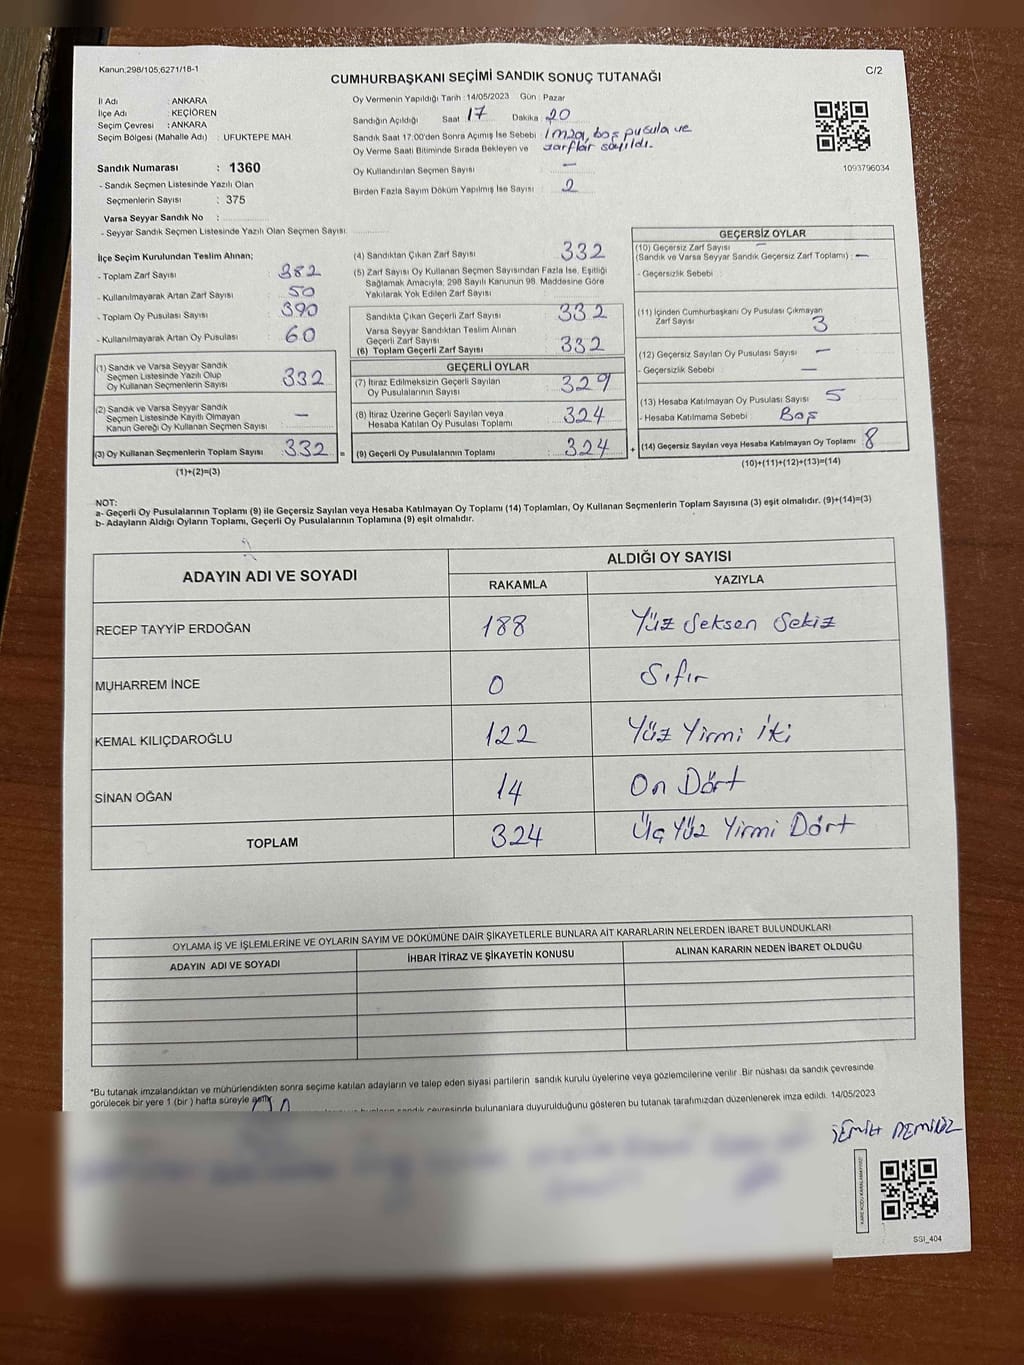 Kanun,298/105,6271/18-1
C/2
CUMHURBAŞKANI SEÇİMİ SANDIK SONUÇ TUTANAĞI
İl Adı : ANKARA
İlçe Adı : KEÇİÖREN
Seçim Çevresi : ANKARA
Seçim Bölgesi (Mahalle Adı) : UFUKTEPE MAH.
Oy Vermenin Yapıldığı Tarih : 14/05/2023 Gün : Pazar
Sandığın Açıldığı Saat 17 Dakika : 20
Sandık Saat 17:00'den Sonra Açımış İse Sebebi : İmza, boş pusula ve
Oy Verme Saati Bitiminde Sırada Bekleyen ve zarflar sayıldı.
Oy Kullandırılan Seçmen Sayısı : —
Birden Fazla Sayım Döküm Yapılmış İse Sayısı : 2
1093796034
Sandık Numarası : 1360
- Sandık Seçmen Listesinde Yazılı Olan
Seçmenlerin Sayısı : 375
Varsa Seyyar Sandık No :
- Seyyar Sandık Seçmen Listesinde Yazılı Olan Seçmen Sayısı:
İlçe Seçim Kurulundan Teslim Alınan;
- Toplam Zarf Sayısı : 382
- Kullanılmayarak Artan Zarf Sayısı : 50
- Toplam Oy Pusulası Sayısı : 390
- Kullanılmayarak Artan Oy Pusulası : 60
(1) Sandık ve Varsa Seyyar Sandık
Seçmen Listesinde Yazılı Olup
Oy Kullanan Seçmenlerin Sayısı : 332
(2) Sandık ve Varsa Seyyar Sandık
Seçmen Listesinde Kayıtlı Olmayan
Kanun Gereği Oy Kullanan Seçmen Sayısı : —
(3) Oy Kullanan Seçmenlerin Toplam Sayısı : 332 =
(1)+(2)=(3)
(4) Sandıktan Çıkan Zarf Sayısı : 332
(5) Zarf Sayısı Oy Kullanan Seçmen Sayısından Fazla İse, Eşitliği
Sağlamak Amacıyla; 298 Sayılı Kanunun 98. Maddesine Göre
Yakılarak Yok Edilen Zarf Sayısı :
Sandıkta Çıkan Geçerli Zarf Sayısı : 332
Varsa Seyyar Sandıktan Teslim Alınan
Geçerli Zarf Sayısı
(6) Toplam Geçerli Zarf Sayısı : 332
GEÇERLİ OYLAR
(7) İtiraz Edilmeksizin Geçerli Sayılan
Oy Pusulalarının Sayısı : 329
(8) İtiraz Üzerine Geçerli Sayılan veya
Hesaba Katılan Oy Pusulası Toplamı : 324
(9) Geçerli Oy Pusulalarının Toplamı : 324 +
GEÇERSİZ OYLAR
(10) Geçersiz Zarf Sayısı —
(Sandık ve Varsa Seyyar Sandık Geçersiz Zarf Toplamı) : —
- Geçersizlik Sebebi :
(11) İçinden Cumhurbaşkanı Oy Pusulası Çıkmayan
Zarf Sayısı 3
(12) Geçersiz Sayılan Oy Pusulası Sayısı : —
- Geçersizlik Sebebi : —
(13) Hesaba Katılmayan Oy Pusulası Sayısı : 5
- Hesaba Katılmama Sebebi : Boş
(14) Geçersiz Sayılan veya Hesaba Katılmayan Oy Toplamı : 8
(10)+(11)+(12)+(13)=(14)
NOT:
a- Geçerli Oy Pusulalarının Toplamı (9) ile Geçersiz Sayılan veya Hesaba Katılmayan Oy Toplamı (14) Toplamları, Oy Kullanan Seçmenlerin Toplam Sayısına (3) eşit olmalıdır. (9)+(14)=(3)
b- Adayların Aldığı Oyların Toplamı, Geçerli Oy Pusulalarının Toplamına (9) eşit olmalıdır.
ADAYIN ADI VE SOYADI
ALDIĞI OY SAYISI
RAKAMLA YAZIYLA
RECEP TAYYİP ERDOĞAN 188 Yüz Seksen Sekiz
MUHARREM İNCE 0 Sıfır
KEMAL KILIÇDAROĞLU 122 Yüz Yirmi İki
SİNAN OĞAN 14 On Dört
TOPLAM 324 Üç Yüz Yirmi Dört
OYLAMA İŞ VE İŞLEMLERİNE VE OYLARIN SAYIM VE DÖKÜMÜNE DAİR ŞİKAYETLERLE BUNLARA AİT KARARLARIN NELERDEN İBARET BULUNDUKLARI
ADAYIN ADI VE SOYADI İHBAR İTİRAZ VE ŞİKAYETİN KONUSU ALINAN KARARIN NEDEN İBARET OLDUĞU
*Bu tutanak imzalandıktan ve mühürlendikten sonra seçime katılan adayların ve talep eden siyasi partilerin sandık kurulu üyelerine veya gözlemcilerine verilir. Bir nüshası da sandık çevresinde
görülecek bir yere 1 (bir) hafta süreyle asılır.
sandık çevresinde bulunanlara duyurulduğunu gösteren bu tutanak tarafımızdan düzenlenerek imza edildi. 14/05/2023
SEMİH DEMİRÖZ
SSI_404